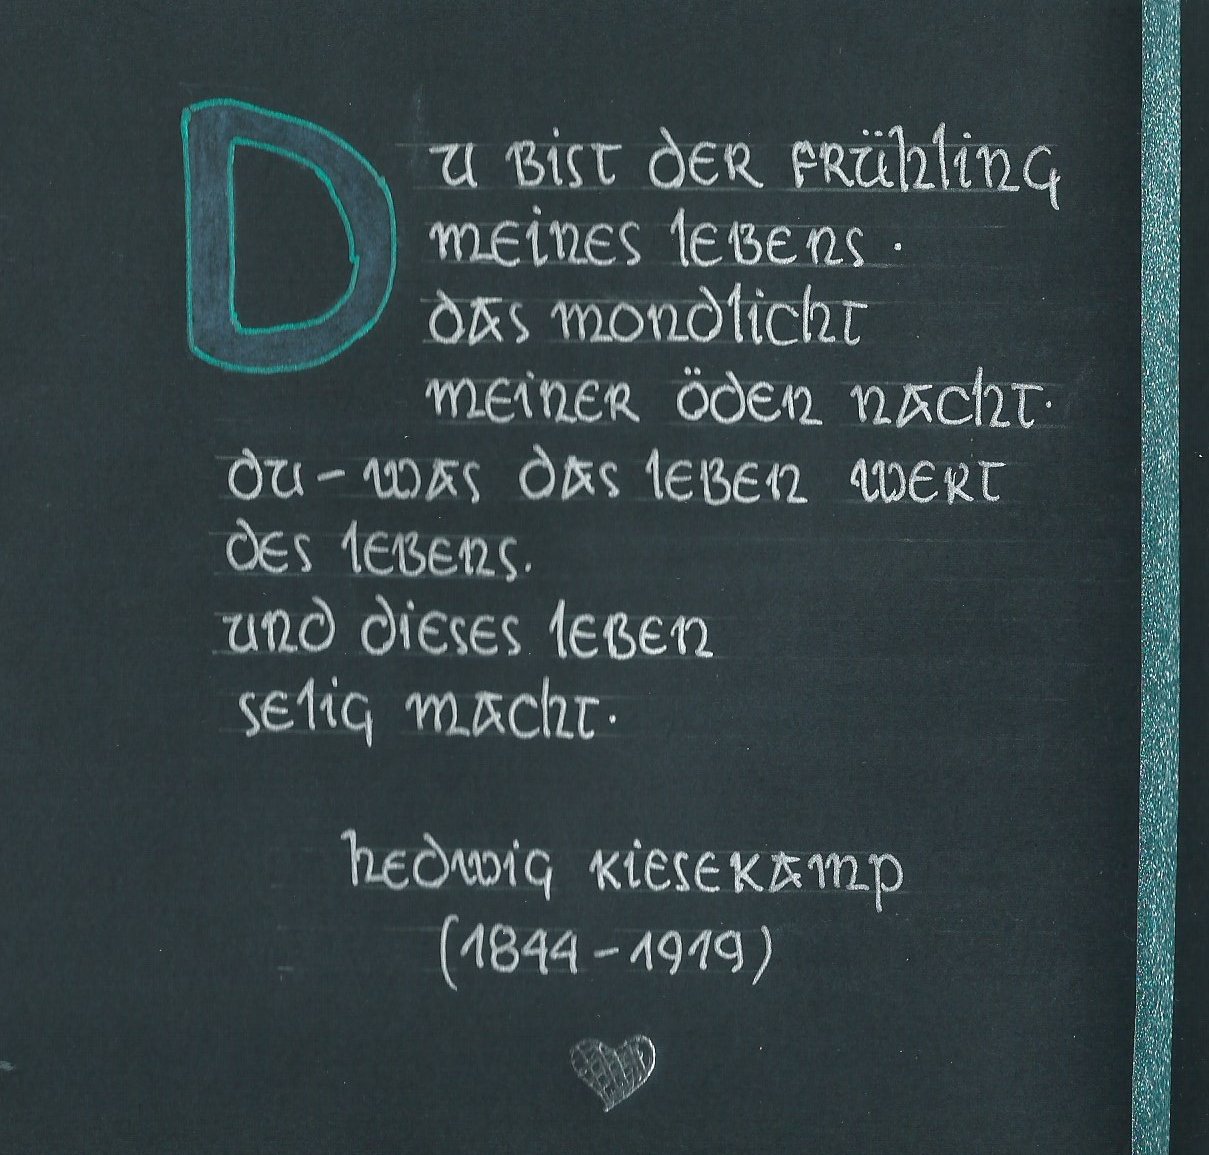 Du bist der Frühling
meines Lebens.
das Mondlicht
meiner öden Nacht.
du – was das Leben wert
des Lebens.
und dieses Leben
selig macht.
Hedwig Kiesekamp
(1844 – 1919)